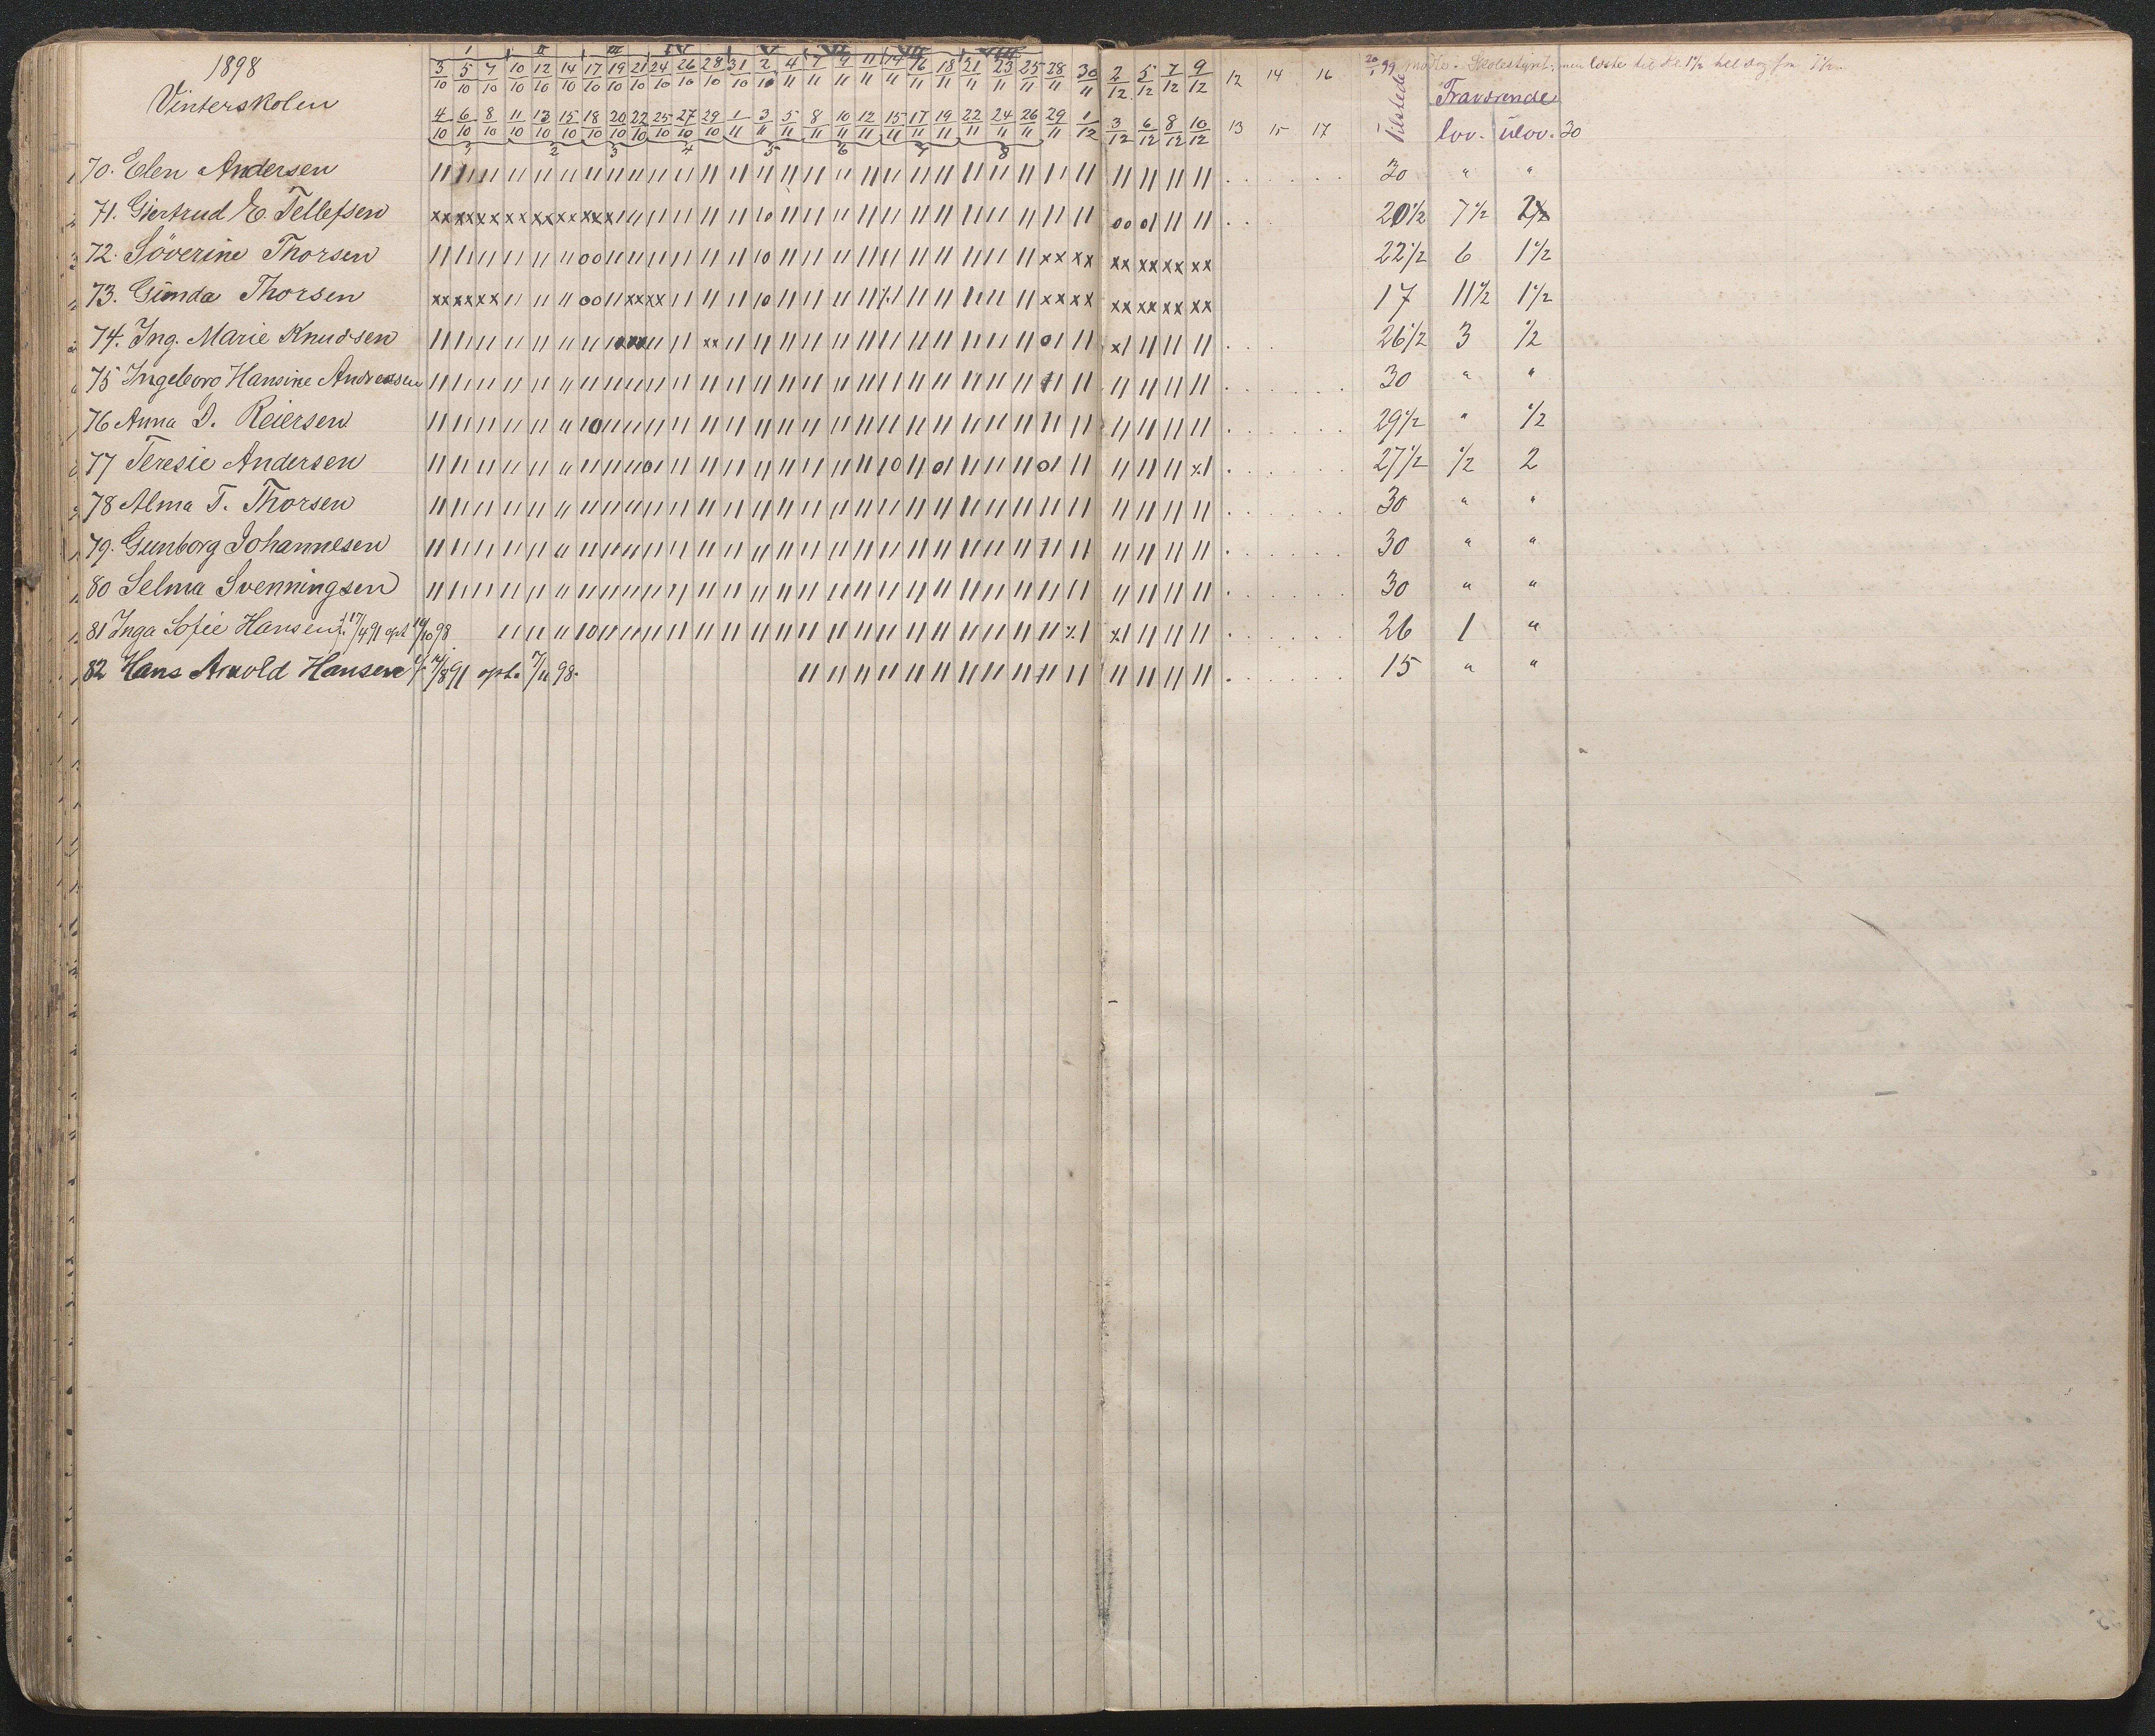 1898
Vinterskolen
I II III IV V VI VII VIII
3/10 5/10 7/10 10/10 12/10 14/10 17/10 19/10 21/10 24/10 26/10 28/10 31/10 2/11 4/11 7/11 9/11 11/11 14/11 16/11 18/11 21/11 23/11 25/11 28/11 30/11 2/12 5/12 7/12 9/12 12 14 16
4/10 6/10 8/10 11/10 13/10 15/10 18/10 20/10 22/10 25/10 27/10 29/10 1/11 3/11 5/11 8/11 10/11 12/11 15/11 17/11 19/11 22/11 24/11 26/11 29/11 1/12 3/12 6/12 8/12 10/12 13 15 17
1 2 3 4 5 6 7 8
20/1 99 Skolestyret
Tilstede
Fraværende
lov. ulov. 30
70. Elen Andersen 30 " "
71. Giertrud E Tellefsen 20 1/2 7 1/2 2
72. Söverine Thorsen 22 1/2 6 1 1/2
73. Gunda Thorsen 17 11 1/2 1 1/2
74. Ing. Marie Knudsen 26 1/2 3 1/2
75 Ingeborg Hansine Andreassen 30 " "
76 Anna D. Reiersen 29 1/2 " 1/2
77 Teresie Andersen 27 1/2 1/2 2
78 Alma T. Thorsen 30 " "
79. Gunborg Johannesen 30 " "
80 Selma Svenningsen 30 " "
81 Inga Sofie Hansen f. 17/4 91 opt 10/10 98 26 1 "
82 Hans Arnold Hansen f. /8 91 opt. 7/11 98. 15 " "